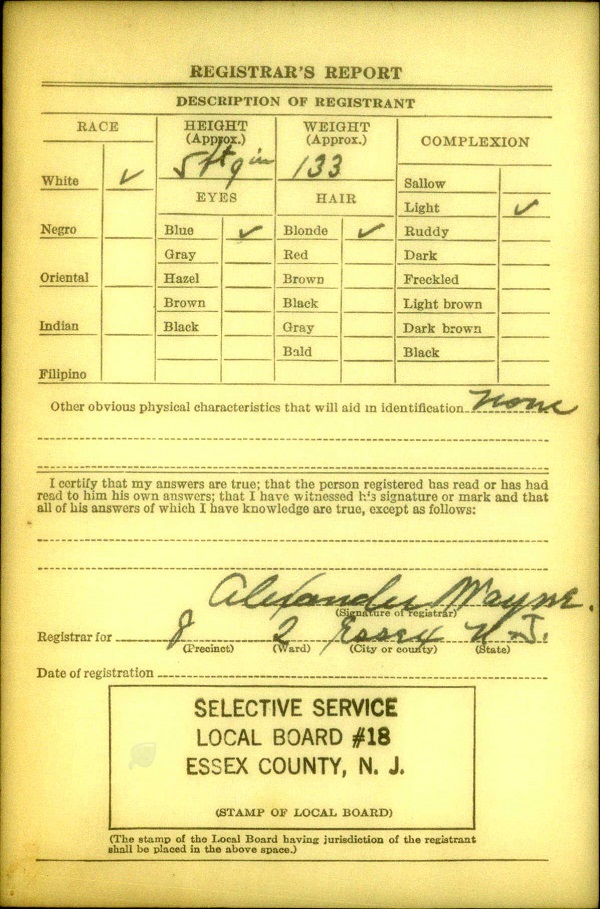 REGISTRAR'S REPORT
DESCRIPTION OF REGISTRANT
RACE
HEIGHT (Approx.)
WEIGHT (Approx.)
COMPLEXION
5 ft 9 in
133
White ✓
Negro
Oriental
Indian
Filipino
EYES
Blue ✓
Gray
Hazel
Brown
Black
HAIR
Blonde ✓
Red
Brown
Black
Gray
Bald
Sallow
Light ✓
Ruddy
Dark
Freckled
Light brown
Dark brown
Black
Other obvious physical characteristics that will aid in identification none
I certify that my answers are true; that the person registered has read or has had
read to him his own answers; that I have witnessed his signature or mark and that
all of his answers of which I have knowledge are true, except as follows:
Alexander Wayne.
(Signature of registrar)
Registrar for 8 2 Essex N.J.
(Precinct) (Ward) (City or county) (State)
Date of registration
SELECTIVE SERVICE
LOCAL BOARD #18
ESSEX COUNTY, N. J.
(STAMP OF LOCAL BOARD)
(The stamp of the Local Board having jurisdiction of the registrant
shall be placed in the above space.)